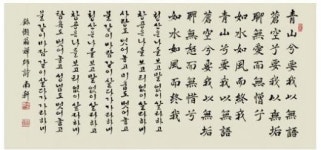 靑山兮要我以無語
蒼空兮要我以無垢
聊無愛而無憎兮
如水如風而終我
靑山兮要我以無語
蒼空兮要我以無垢
聊無怒而無惜兮
如水如風而終我
청산은 나를 보고 말없이 살라하고
창공은 나를 보고 티없이 살라하네
사랑도 벗어놓고 미움도 벗어놓고
물같이 바람같이 살다가 가라하네
청산은 나를 보고 말없이 살라하고
창공은 나를 보고 티없이 살라하네
성냄도 벗어놓고 탐욕도 벗어놓고
물같이 바람같이 살다가 가라하네